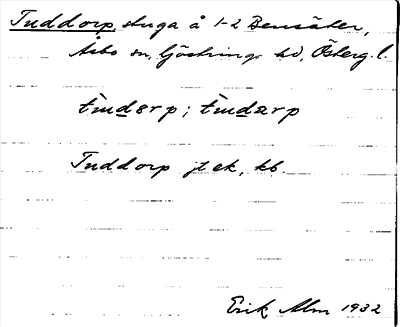 Tuddorp, stuga å 1-2 Bensäter,
Åsbo sn, Göstrings hd, Österg. l.
Tuddorp jt ek, kb.
Erik Alm 1932